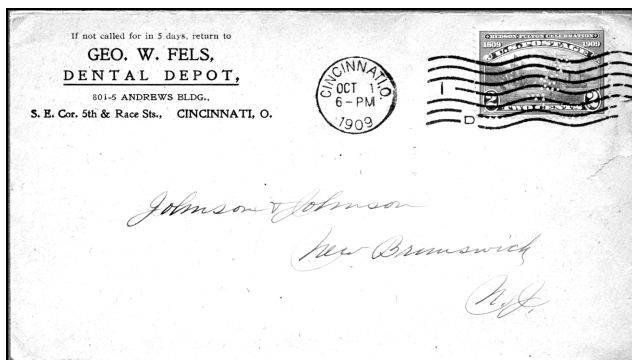 If not called for in 5 days, return to
GEO. W. FELS,
DENTAL DEPOT,
801-5 ANDREWS BLDG.,
S. E. Cor. 5th & Race Sts., CINCINNATI, O.
CINCINNATI, O.
OCT 1
6-PM
1909
1
D
HUDSON-FULTON CELEBRATION
1609 1909
U.S. POSTAGE
2 TWO CENTS 2
Johnson & Johnson
New Brunswick
N.J.